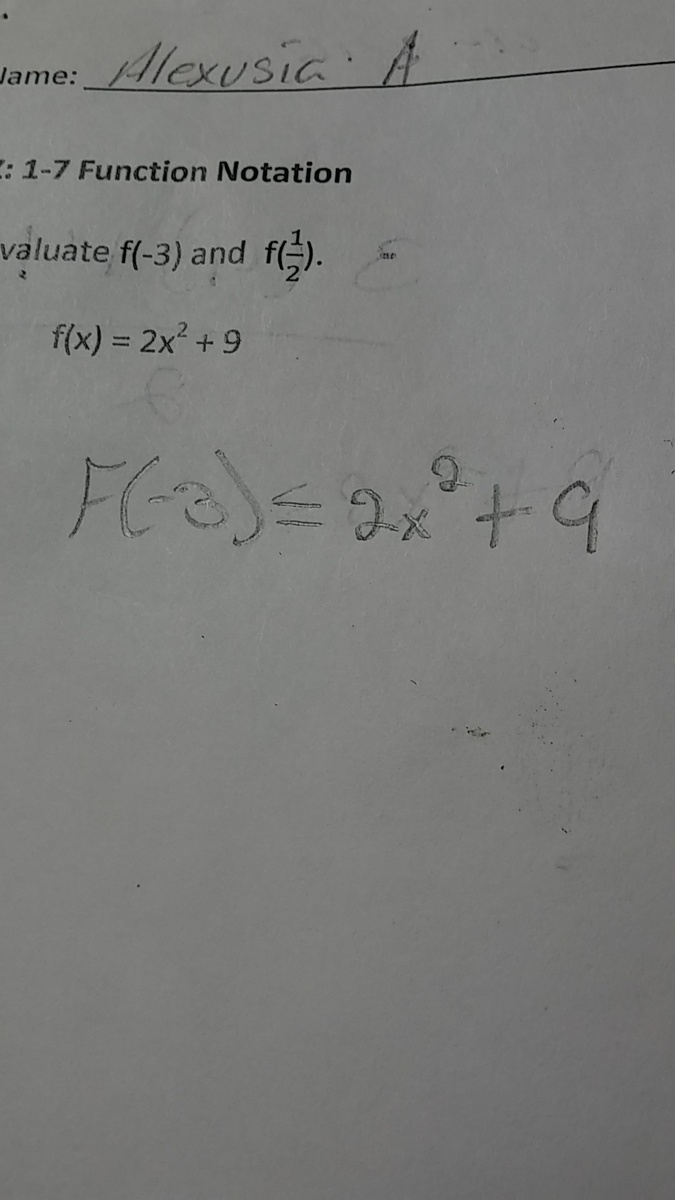 Name: Alexusia A
: 1-7 Function Notation
valuate f(-3) and f(1/2).
f(x) = 2x² + 9
F(-3) = 2x² + 9